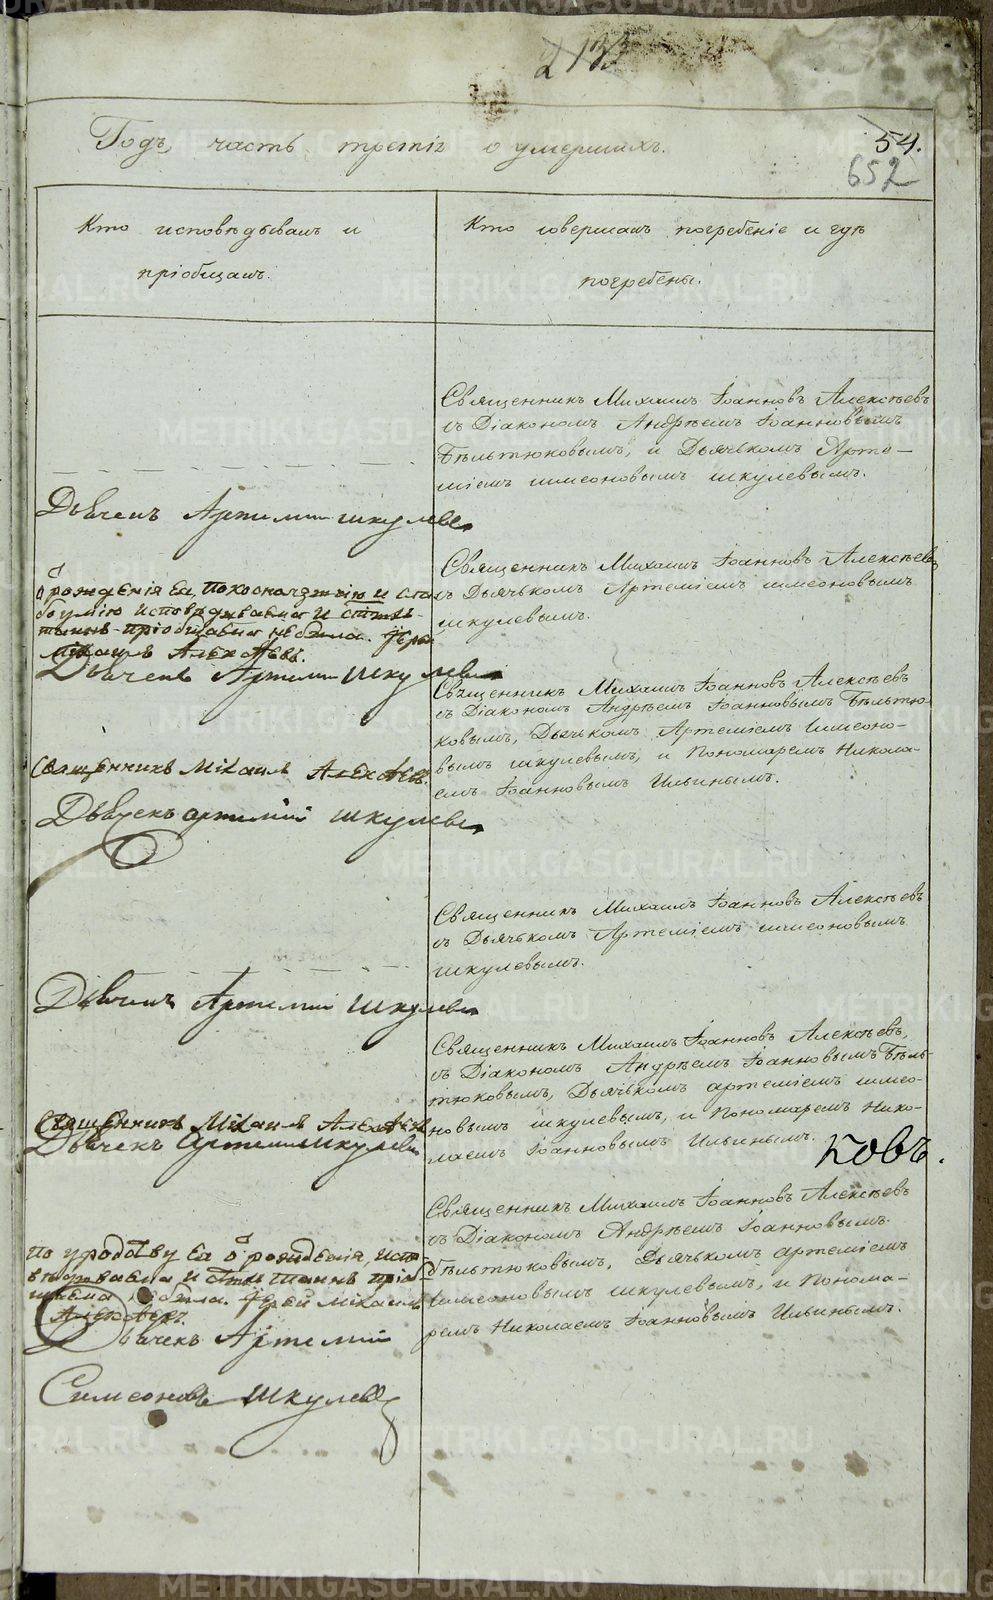 2 133
Годъ, часть третія о умершихъ.
54.
652
Кто исповѣдывалъ и
пріобщалъ.
Кто совершалъ погребеніе и гдѣ
погребены.
Священникъ Михаилъ Іоанновъ Алексѣевъ
съ Діакономъ Андрѣемъ Іоанновымъ
Бѣльтюковымъ, и Дьячькомъ Арте-
міемъ шмеоновымъ шкулевымъ.
Дьячекъ Артемии шкулевъ
Священникъ Михаилъ Іоанновъ Алексѣевъ
съ Дьячькомъ Артеміемъ шмеоновымъ
шкулевымъ.
ѿ рожденія Ея, по косноязычію и сла
боумію исповѣдывабма и
пріобщабма не была. Іерей
Михаилъ Алексѣевъ.
Дьячекъ Артемии Шкулевъ
Священникъ Михаилъ Іоанновъ Алексѣевъ
съ Діакономъ Андрѣемъ Іоанновымъ Бѣльтю-
ковымъ, Дьячькомъ Артеміемъ Шмеоно-
вымъ шкулевымъ, и Пономаремъ Никола-
емъ Іоанновымъ Ильинымъ.
Священникъ Міхаилъ Алексѣевъ.
Дьячекъ артемій шкулевъ
Священникъ Михаилъ Іоанновъ Алексѣевъ
съ Дьячькомъ Артеміемъ шмеоновымъ
шкулевымъ.
Дьячекъ Артемии Шкулевъ
Священникъ Михаилъ Іоанновъ Алексѣевъ,
съ Діакономъ Андрѣемъ Іоанновымъ Бѣль-
тюковымъ, Дьячькомъ артеміемъ шмео-
новымъ шкулевымъ, и Пономаремъ Нико-
лаемъ Іоанновымъ Ильинымъ.
ковъ.
Священникъ Міхаилъ Алексѣевъ
Дьячекъ Артемии шкулевъ
Священникъ Михаилъ Іоанновъ Алексѣевъ
съ Діакономъ Андрѣемъ Іоанновымъ
бѣльтюковымъ, Дьячькомъ артеміемъ
Шмеоновымъ шкулевымъ, и Понома-
ремъ Николаемъ Іоанновымъ Ильинымъ.
по уродству Ея ѿ рожденія, испо-
вѣдывабма и пріоб
щаема не была. Іерей Міхаилъ
Алексѣевъ.
Дьячекъ Артемии
Симеоновъ Шкулевъ
METRIKI.GASO-URAL.RU